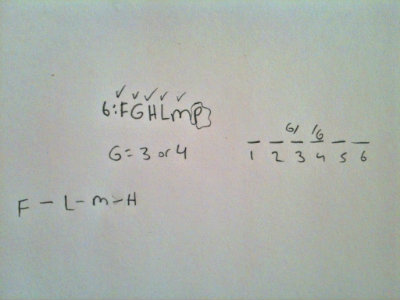 6: F G H L m P
G = 3 or 4
G/ /G
1 2 3 4 5 6
F - L - m - H